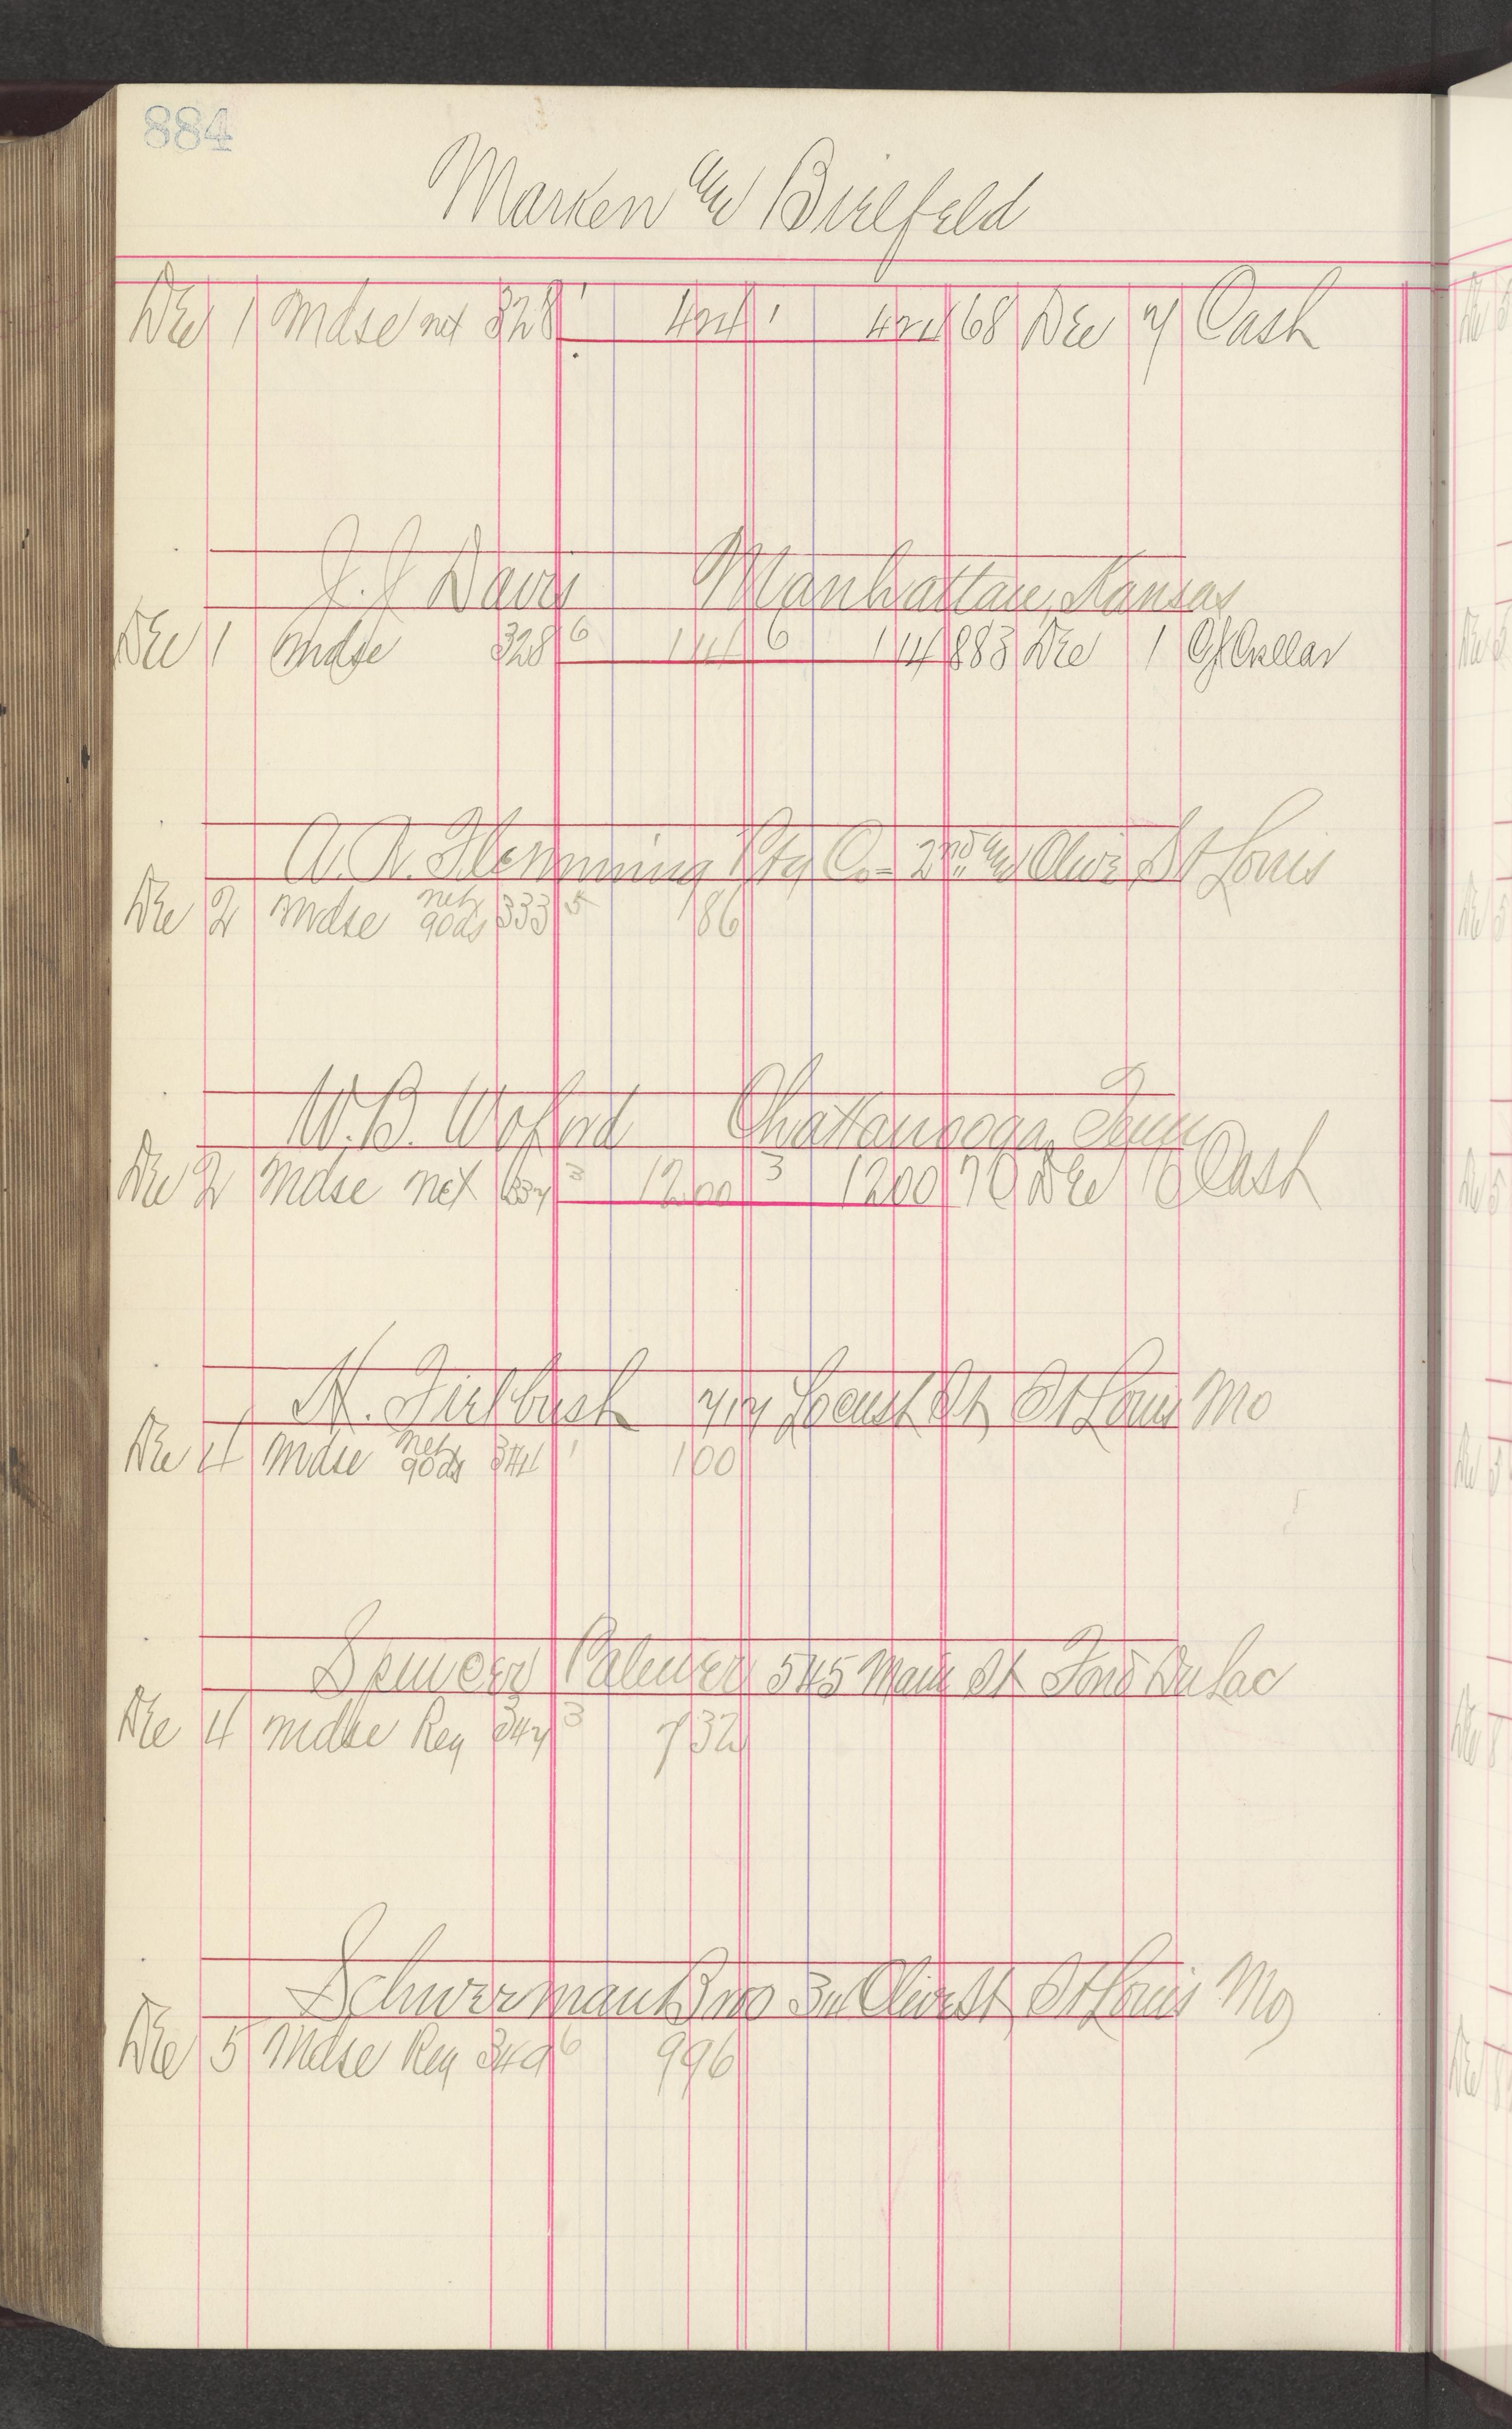 884
Marken and Bielfeld
Dec 1 Mdse net 328 1 424 1 424 68 Dec 7 Cash
J. J Davis Manhattan, Kansas
Dec 1 Mdse 328 6 144 6 144 883 Dec 1
A. A. Flemming Ptg Co - 2nd and Olive St Louis
Dec 2 Mdse net 90ds 333 5 186
W. B. Woford Chattanooga, Tenn
Dec 2 Mdse net 337 3 1200 3 1200 70 Dec 10 Cash
H. 717 Locust St, St Louis Mo
Dec 4 Mdse net 90ds 344 1 100
Spencer Palmer 545 Main St Fond Du Lac
Dec 4 Mdse Reg 347 3 732
Schuerman Bros Olive St, St Louis Mo,
Dec 5 Mdse Reg 349 6 996